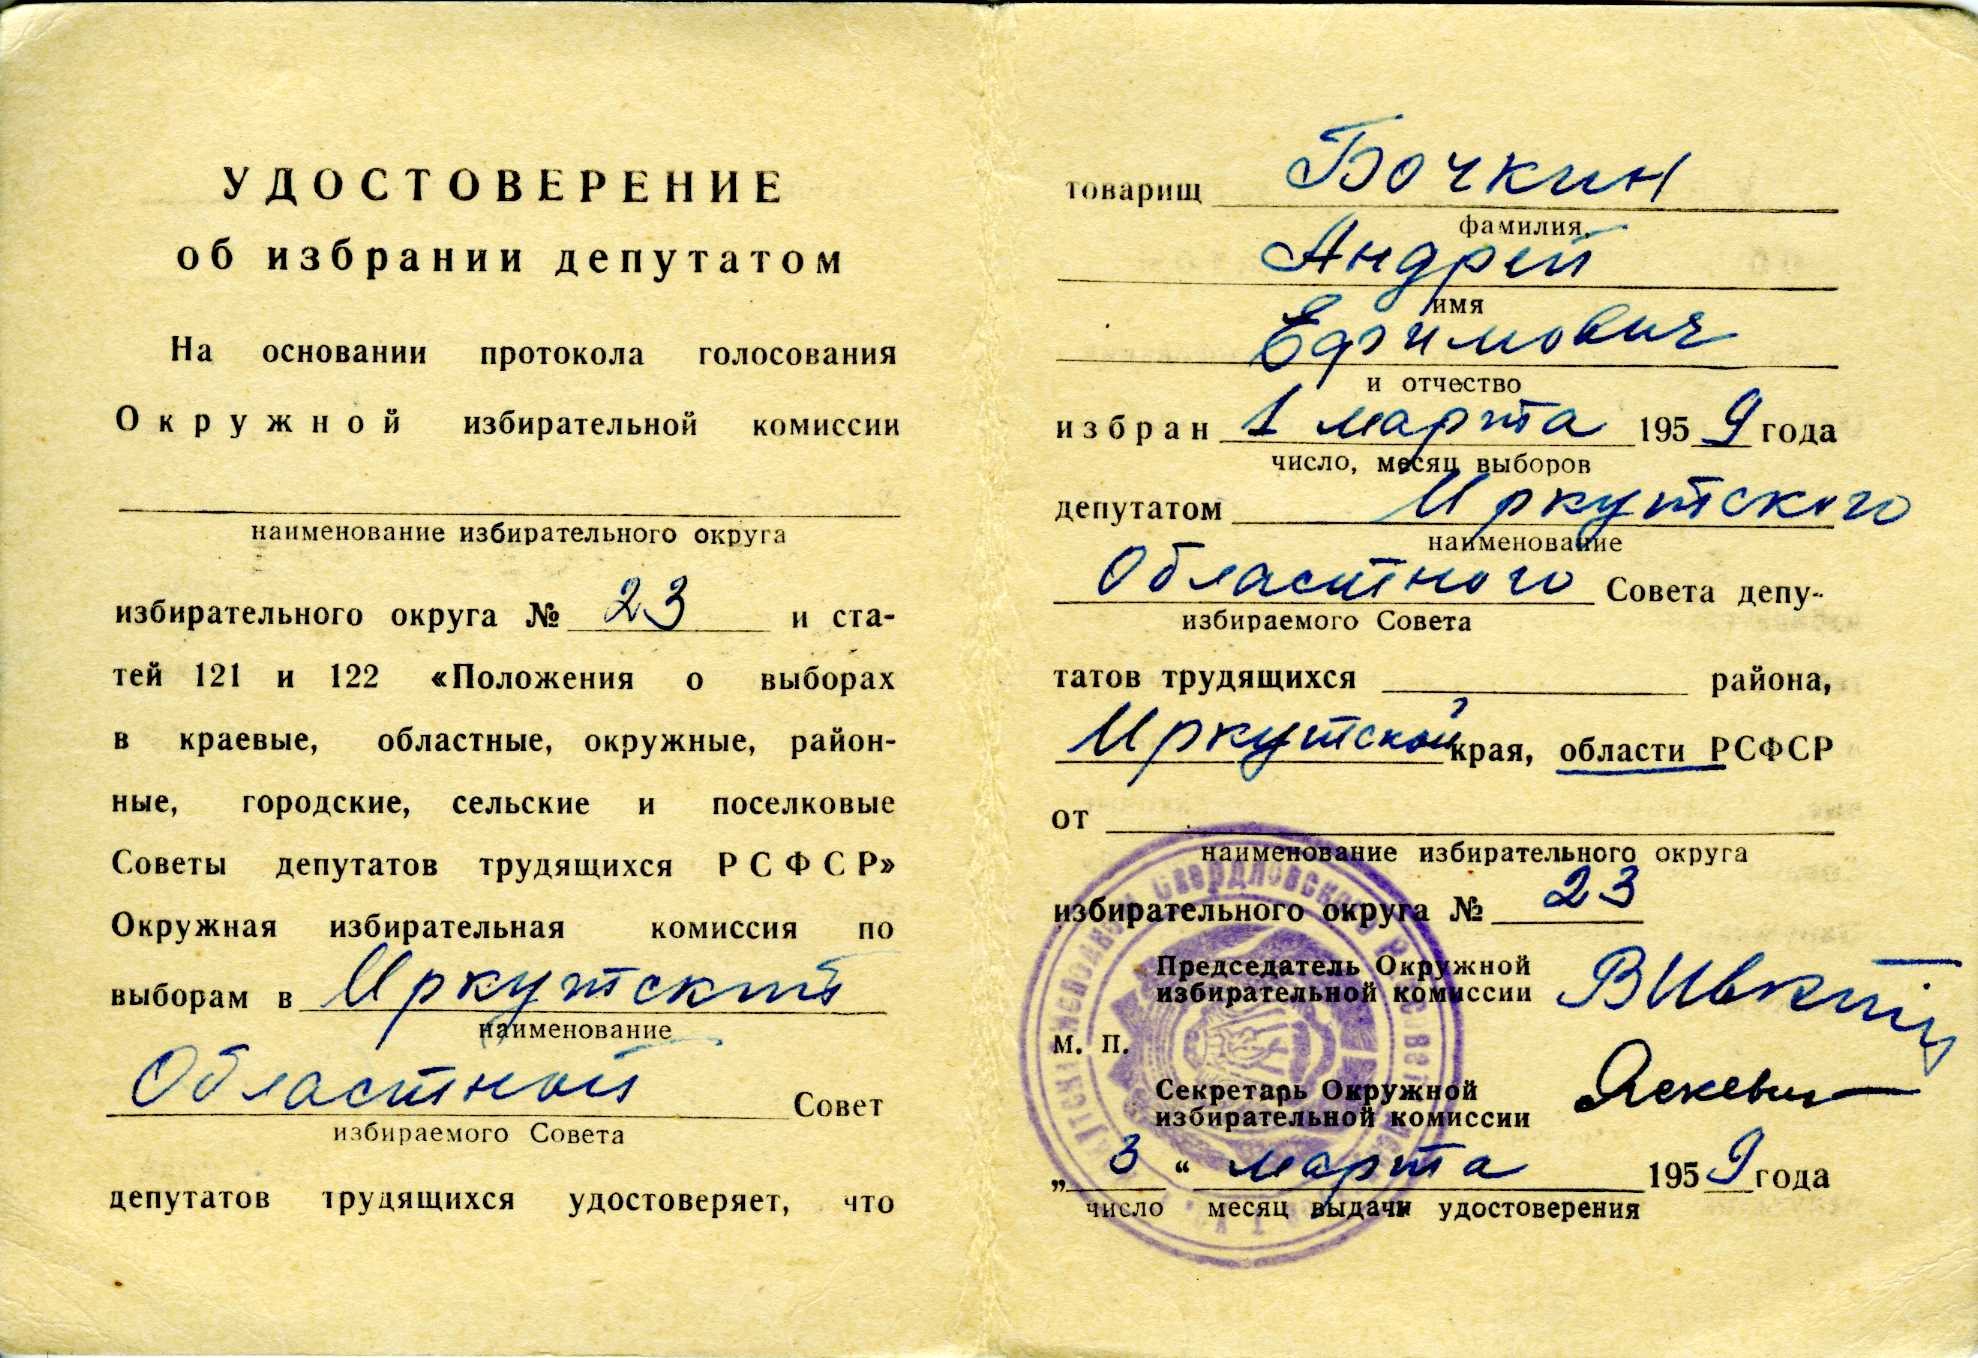 УДОСТОВЕРЕНИЕ
об избрании депутатом
На основании протокола голосования
Окружной избирательной комиссии
наименование избирательного округа
избирательного округа № 23 и ста-
тей 121 и 122 «Положения о выборах
в краевые, областные, окружные, район-
ные, городские, сельские и поселковые
Советы депутатов трудящихся РСФСР»
Окружная избирательная комиссия по
выборам в Иркутский
наименование
Областной Совет
избираемого Совета
депутатов трудящихся удостоверяет, что
товарищ Бочкин
фамилия,
Андрей
имя
Ефимович
и отчество
избран 1 марта 1959 года
число, месяц выборов
депутатом Иркутского
наименование
Областного Совета депу-
избираемого Совета
татов трудящихся района,
Иркутской края, области РСФСР
от
наименование избирательного округа
избирательного округа № 23
Председатель Окружной
избирательной комиссии
М. П.
Секретарь Окружной
избирательной комиссии
„3“ марта 1959 года
число месяц выдачи удостоверения
Свердловского